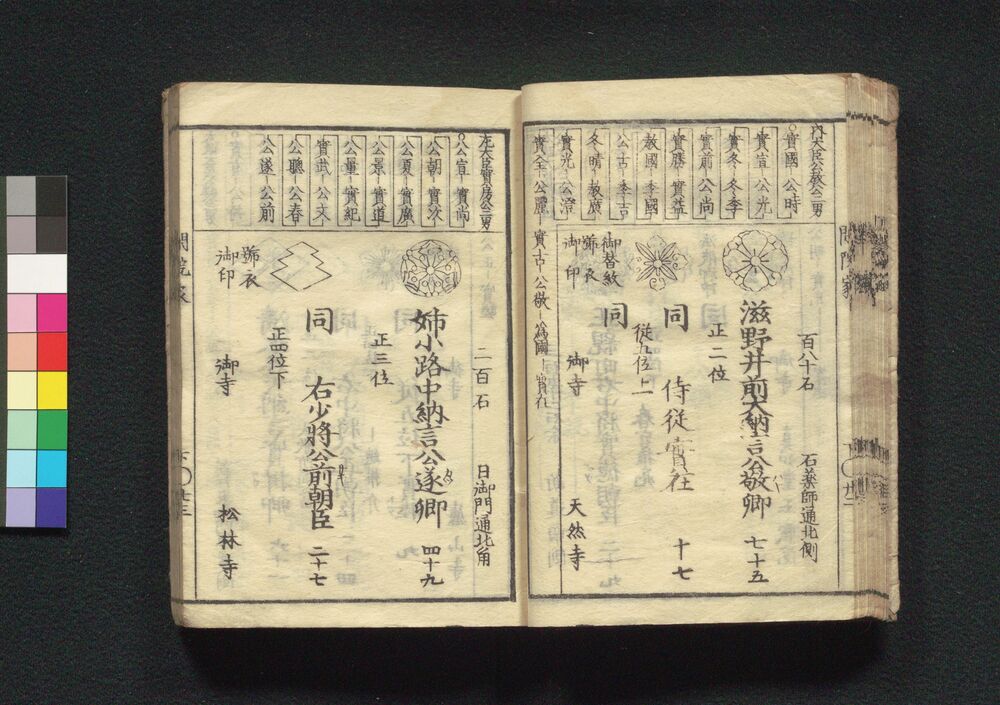 内大臣公教公二男
實國 公時
實宣 公光
實冬 冬季
實前 公尚
實勝 實益
教國 季國
公古 季吉
冬晴 教廣
實光 公澄
實全 公麗 實古 公敬 為國 實在
百八十石 石薬師通北側
滋野井前大納言公敬卿 七十五
正二位
同 侍從實在 十七
從五位上
同
御替紋
號衣
御印
御寺 天然寺
閑院家
左大臣實房公二男
公宣 實尚
公朝 實次
公夏 實廣
公景 實道
公量 實紀
實武 公文
公聰 公春
公遂 公前
二百石 日御門通北角
姉小路中納言公遂卿 四十九
正三位
同 右少將公前朝臣 二十七
正四位下
號衣
御印
御寺 松林寺
閑院家